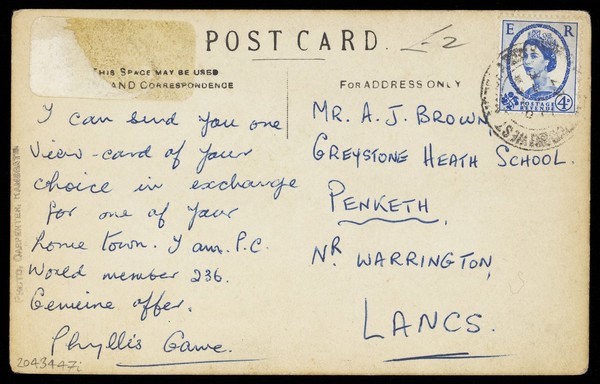 POST CARD.
£-2
THIS SPACE MAY BE USED
AND CORRESPONDENCE
FOR ADDRESS ONLY
E R
POSTAGE
REVENUE
4D
I can send you one
view-card of your
choice in exchange
for one of your
home town. I am P.C.
World member 236.
Genuine offer.
Phyllis Gawe.
MR. A. J. BROWN,
GREYSTONE HEATH SCHOOL.
PENKETH,
NR WARRINGTON,
LANCS.
PHOTO. CARPENTER, RAMSGATE
2043447i